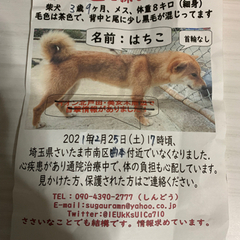 柴犬 3歳9ヶ月、メス、体重8キロ(細身)
毛色は茶色で、背中と尾に少し黒毛が混じってます
名前:はちこ
首輪なし
2021年2月25日(土)17時頃、
埼玉県さいたま市南区 付近でいなくなりました。
心疾患があり通院治療中で、体の負担も心配しています。
見かけた方、保護された方はご連絡ください。
TEL:090-4390-2777(しんどう)
E-mail:sugouramn@yahoo.co.jp
Twitter:@IEUkKsUICo710
ささいなことでも結構です。情報求めています。